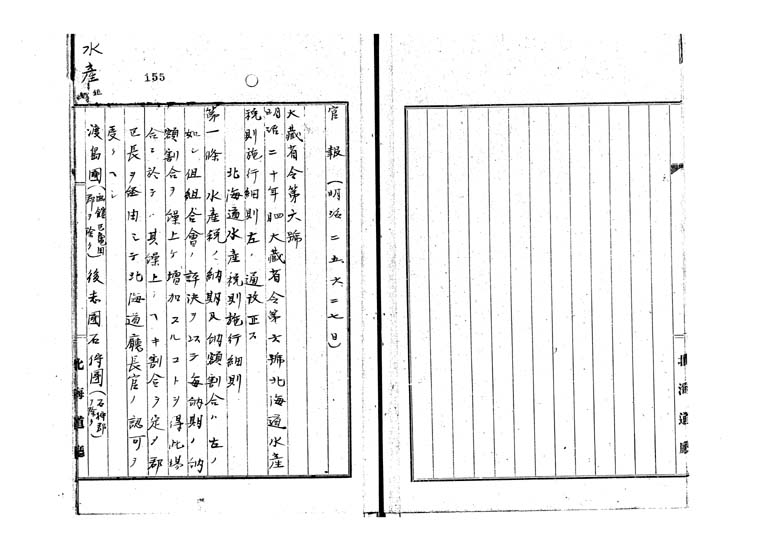 北海道廳
官報(明治二五、六、二七日)
大藏省令第六號
明治二十年四大藏省令第六號北海道水産
税則施行細則左ノ通改正ス
北海道水産税則施行細則
第一條 水産税ノ納期及納額割合ハ左ノ
如シ但組合會ノ評決ヲ以テ毎納期ノ納
額割合ヲ繰上ケ增加スルコトヲ得此場
合ニ於テハ其繰上ノヘキ割合ヲ定メ郡
區長ヲ經由シテ北海道廳長官ノ認可ヲ
受クヘシ
渡島國(函館區龜田郡ヲ除ク)後志國石狩國(石狩郡ヲ除ク)
北海道廳
水産
155